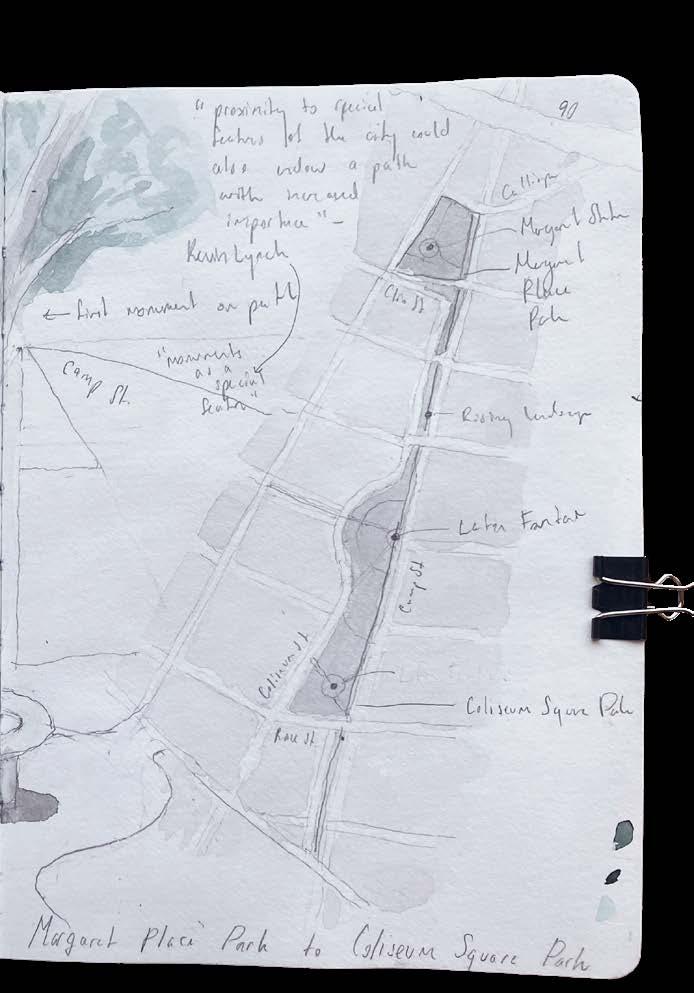 90
"proximity to special
features of the city could
also endow a path
with increased
importance" –
Kevin Lynch
← first monument on path
Camp St.
"monuments
as a
special
feature"
Calliope
Margaret Statue
Margaret
Place
Park
Clio St
Rising landscape
Later Fountain
Camp St
Coliseum St
Coliseum Square Park
Race St
Margaret Place Park to Coliseum Square Park